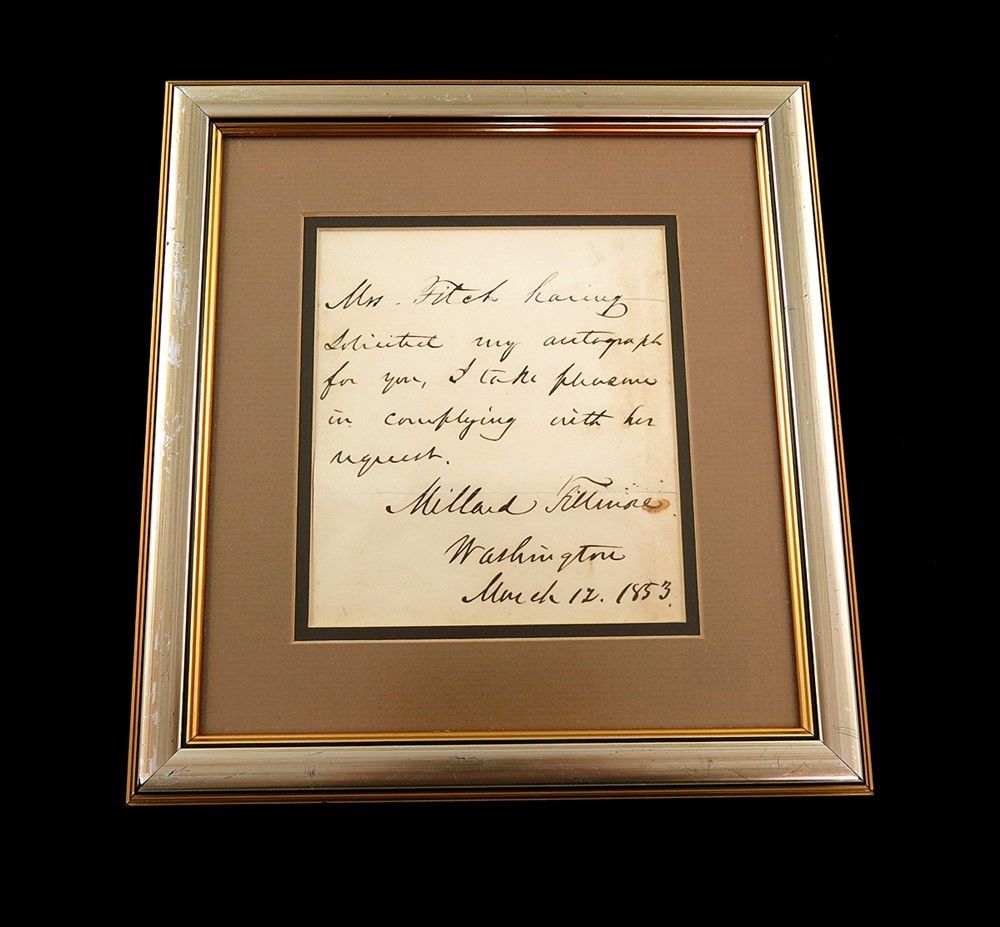 Mrs. Fitch having
solicited my autograph
for you, I take pleasure
in complying with her
request.
Millard Fillmore.
Washington
March 12. 1853.